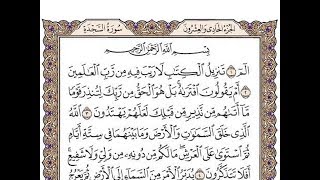 الجزء الحادى والعشرون سورة السجدة
بِسْمِ ٱللَّهِ ٱلرَّحْمَٰنِ ٱلرَّحِيمِ
الٓمٓ ١ تَنزِيلُ ٱلْكِتَٰبِ لَا رَيْبَ فِيهِ مِن رَّبِّ ٱلْعَٰلَمِينَ
٢ أَمْ يَقُولُونَ ٱفْتَرَىٰهُ بَلْ هُوَ ٱلْحَقُّ مِن رَّبِّكَ لِتُنذِرَ قَوْمًا
مَّآ أَتَىٰهُم مِّن نَّذِيرٍ مِّن قَبْلِكَ لَعَلَّهُمْ يَهْتَدُونَ ٣ ٱللَّهُ
ٱلَّذِى خَلَقَ ٱلسَّمَٰوَٰتِ وَٱلْأَرْضَ وَمَا بَيْنَهُمَا فِى سِتَّةِ أَيَّامٍ
ثُمَّ ٱسْتَوَىٰ عَلَى ٱلْعَرْشِ مَا لَكُم مِّن دُونِهِۦ مِن وَلِىٍّ وَلَا شَفِيعٍ
أَفَلَا تَتَذَكَّرُونَ ٤ يُدَبِّرُ ٱلْأَمْرَ مِنَ ٱلسَّمَآءِ إِلَى ٱلْأَرْضِ ثُمَّ يَعْرُجُ